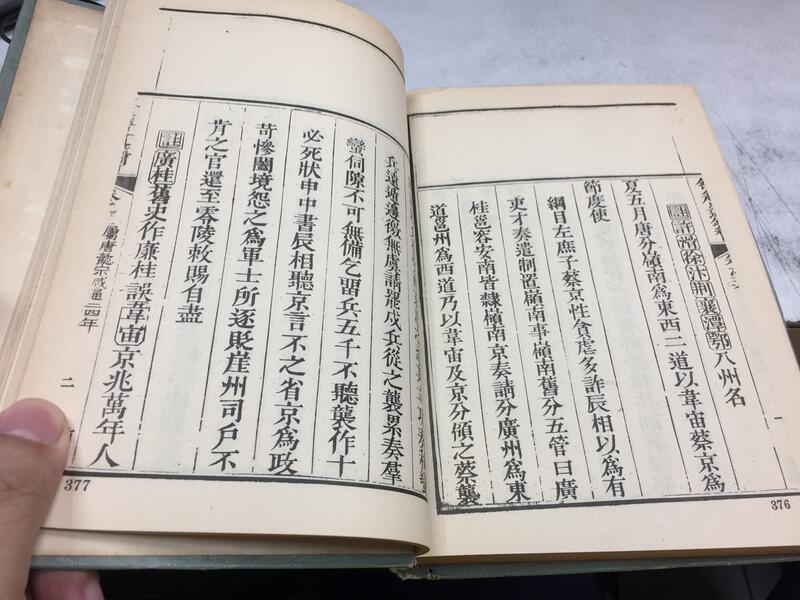 註許滑徐汴荆襄潭鄂八州名
夏五月唐分嶺南爲東西二道以韋宙蔡京爲
節度使
綱目左庶子蔡京性貪虐多詐辰相以爲有
吏才奏遣制置嶺南事嶺南舊分五管曰廣
桂邕容安南皆隸嶺南京奏請分廣州爲東
道邕州爲西道乃以韋宙及京分傾之蔡襲
一
376
兵遠遁邊徼無虞請罷戍兵從之襲累奏羣
蠻伺隙不可無備乞畱兵五千不聽襲作十
必死狀申中書辰相聽京言不之省京爲政
苛慘闔境怨之爲軍士所逐貶崖州司戶不
肯之官還至零陵敕賜自盡
註廣桂舊史作廉桂誤韋宙京兆萬年人
屬唐懿宗咸通二四年
二
377